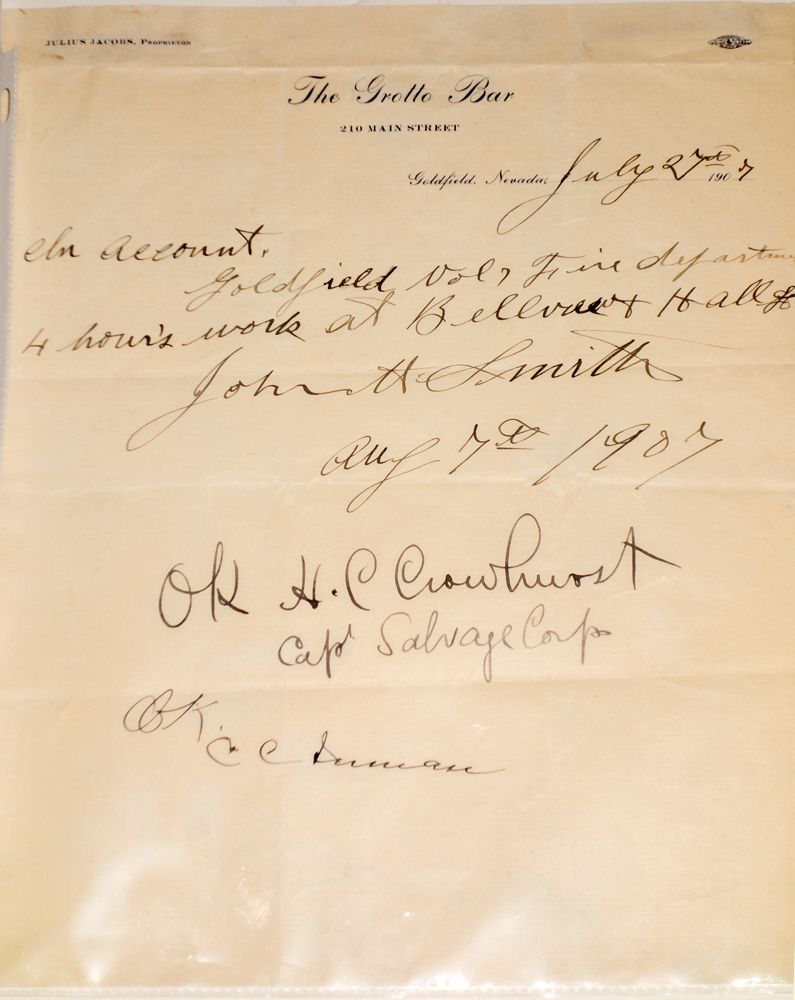 JULIUS JACOBS, PROPRIETOR
The Grotto Bar
210 MAIN STREET
Goldfield, Nevada, July 27th 1907
In account.
Goldfield Vol, Fire departme
4 hours work at Hall
John H Smith
Aug 7th 1907
OK H. C Crowhurst
Capt Salvage Corps
OK.
C C Inman